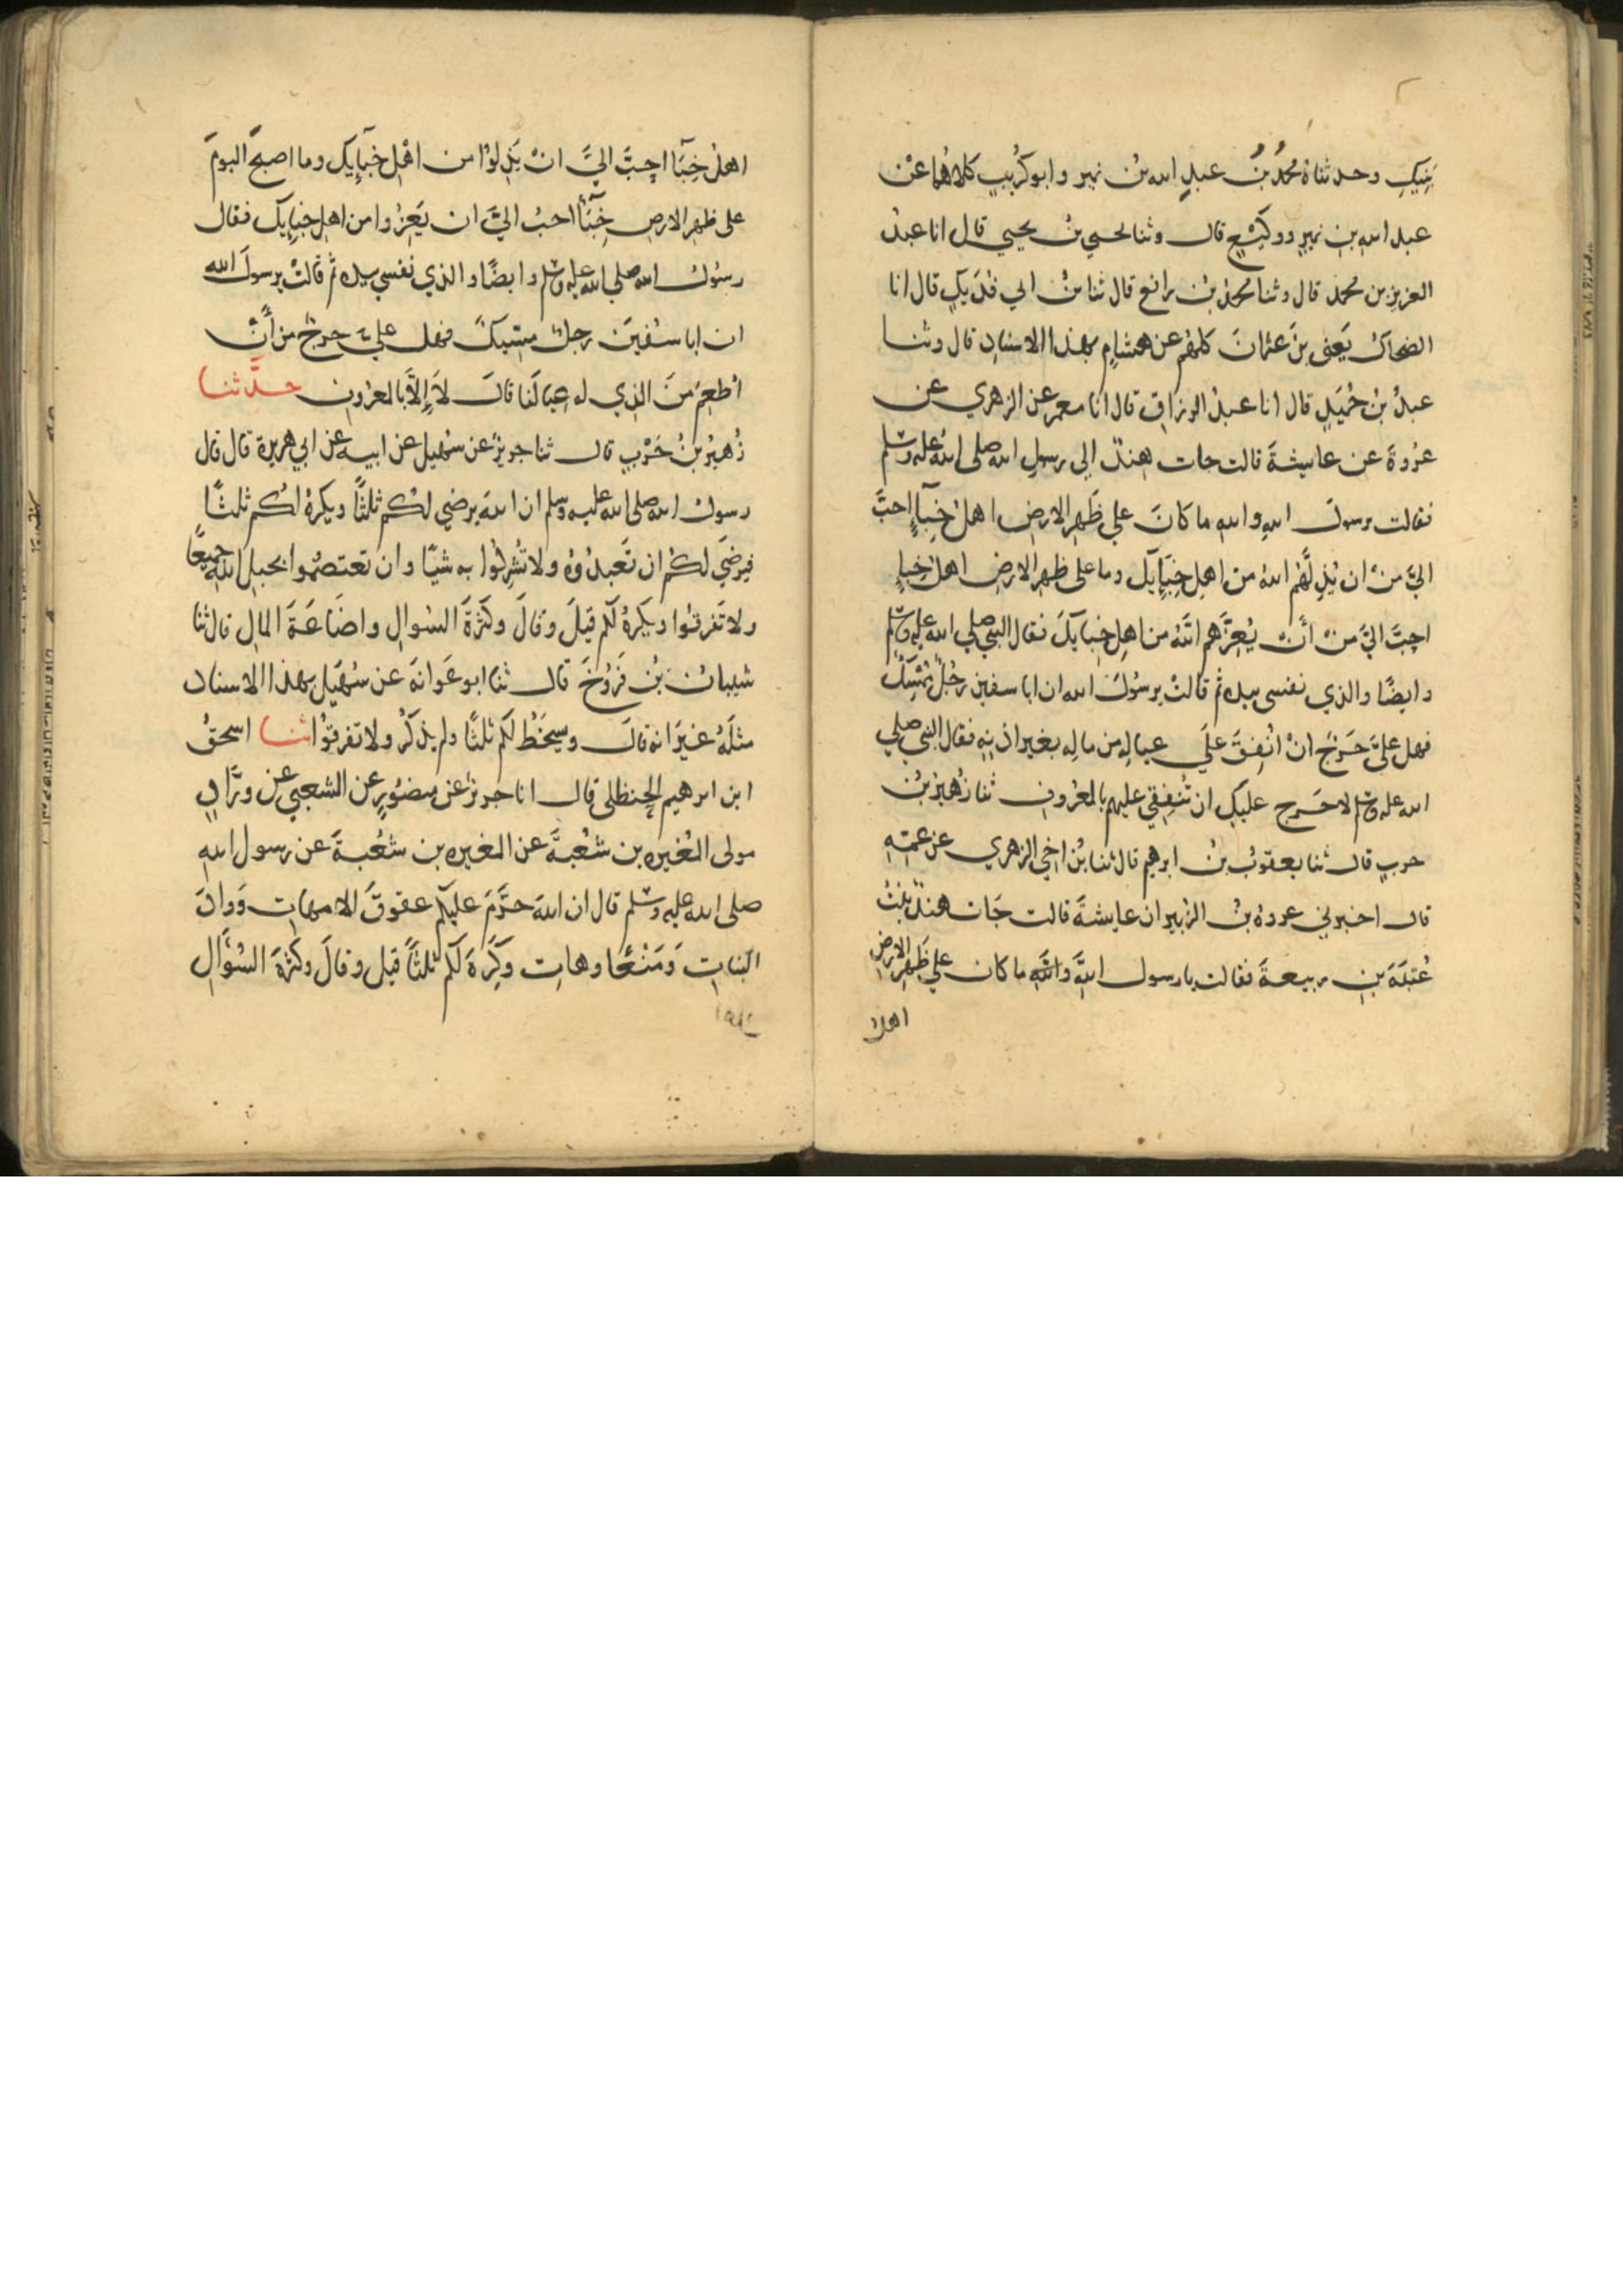 بَنِيكِ وحدثناه محمدُ بنُ عبدِ الله بنُ نمير وابو كُرَيبٍ كلاهُما عنْ
عبد الله بنِ نميرٍ ووكيعٍ قال وثنا يحيي بنُ يحيي قال انا عبدُ
العزيزِ بن محمد قال وثنا محمدُ بنُ رافع قال ثنا بنُ ابي فُدَيكٍ قال انا
الضحاكُ يَعني بنَ عثمانَ كلهُم عن هشامٍ بهذا الاسنادِ قال وثنا
عبدُ بنُ حُمَيدٍ قال انا عبدُ الرزاقِ قال انا معمر عن الزهري عن
عُروةَ عن عايشةَ قالت جات هندٌ الي رسولِ الله صلى اللهُ عليه وسلم
فقالت يرسولَ اللهِ واللهِ ما كانَ علي ظَهرِ الارضِ اهلُ خِبآءٍ احبَّ
اليَّ منْ ان يُذِلَّهُم اللهُ من اهلِ خِبَآيِكَ وما على ظهرِ الارضِ اهلُ خِباءٍ
احبَّ اليَّ منْ أنْ يُعِزَّهم اللهُ من اهلِ خِبايكَ فقال النبي صلي الله عليه وسلم
وايضًا والذي نفسى بيده ثم قالتْ يرسُولَ الله ان ابا سفين رجُلٌ مُمْسِكٌ
فهل علىَّ حَرَجٌ انْ اُنفِقَ علَي عيالِه من مالِه بغيرِ اذنِهِ فقال النبي صلي
الله عليه وسلم لا حَرج عليكِ ان تُنفِقي عليهم بالمعروفِ ثنا زُهيرُ بنُ
حربٍ قال ثنا يعقوبُ بنُ ابرهيم قال ثنا بنُ اخي الزهري عن عمِّهِ
قال اخبرني عروةُ بنُ الزبير ان عايشةَ قالت جَات هندُ بِنْتُ
عُتبَةَ بنِ ربيعةَ فقالت يا رسول اللهِ واللهِ ما كان علي ظَهرِ الارضِ
اهلُ
اهلُ خِبَآءٍ احِبَّ اليَّ انْ يَذِلوُا من اهْلِ خبآيِكَ وما اصبحَ اليومَ
على ظهرِ الارضِ خِبَآءٌ احبُ اليَّ ان يَعِزُوا من اهلِ خبآيِكَ فقال
رسُولُ الله صلي الله عليه وسلم وايضًا والذي نفسي بيده ثم قالتْ يرسولَ الله
ان ابا سُفينَ رجلٌ مِسّيكٌ فهل علىَّ حرجٌ من أنْ
اُطْعِمَ منَ الذِي له عِيالَنا قالَ لاَ إِلاَّ بالمعرُوفِ حدَّثنا
زُهيرُ بنُ حَرْبٍ قال ثنا جريرٌ عن سُهَيلٍ عن ابيه عن ابي هريرة قال قال
رسولُ الله صلى الله عليه وسلم ان اللهَ يرضي لكُم ثلثًا ويكرهُ لكُم ثلثًا
فيرضَي لكُم ان تَعبدُوهُ ولا تُشرِكُوا به شيًا وان تعتصمُوا بحبلِ اللهِ جميعًا
ولا تَفرقوُا ويكَرهُ لكُم قيلَ وقالَ وكثْرةَ السُوالِ واضَاعَةَ المالِ قال ثنا
شيبانُ بنُ فَرُوخَ قال ثنا ابو عَوانةَ عن سُهَيلٍ بهذا الاسناد
مثلَهُ غيرَ انه قالَ ويسخَطُ لكُم ثلثًا ولم يذكُر ولا تفرقُوا ثنا اسحقُ
ابن ابرهيم الحنظلى قال انا جريرٌ عن منصُورٍ عن الشعبيِ عن ورَّادٍ
مولى المُغيرِه بن شُعْبةَ عن المغيره بن شُعْبةَ عن رسول اللهِ
صلى الله عليه وسلم قال ان اللهَ حرَّمَ عليكُم عقوقَ الامهاتِ وَوَادَ
البَناتِ وَمَنْعًا وهاتِ وكَرِهَ لكُم ثلثًا قيل وقالَ وكثْرةَ السُؤالِ